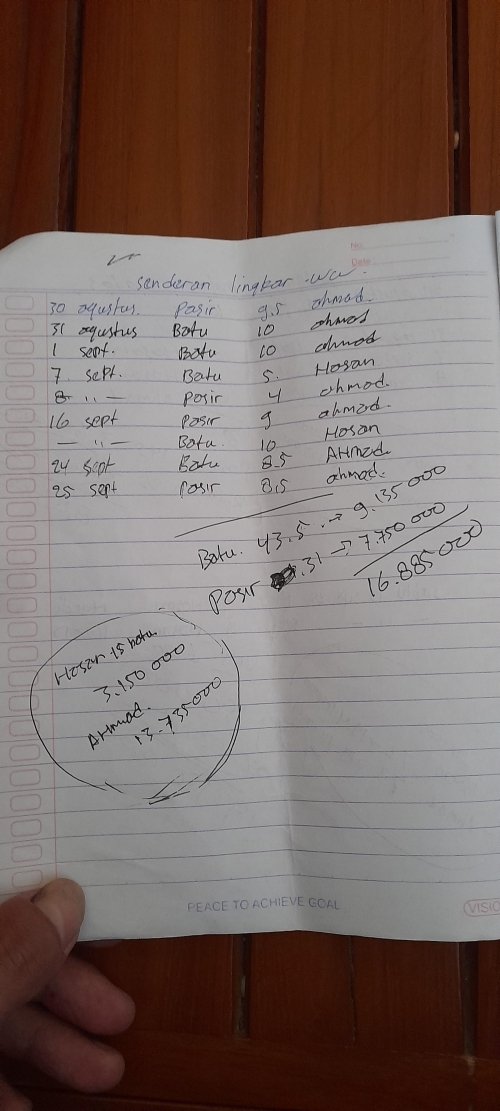 No.
Date
senderan lingkar ww.
30 agustus Pasir 9.5 ahmad.
31 agustus Batu 10 ahmad
1 sept. Batu 10 ahmad
7 sept. Batu 5. Hosan
8 - " - Pasir 4 ahmad.
16 sept Pasir 9 ahmad.
— " — Batu 10 Hosan
24 sept Batu 8.5 AHmad
25 sept Pasir 8,5 ahmad.
Batu. 43.5 → 9.135 000
Pasir .31 → 7.750 000
16.885 000
Hosan 15 batu
3.150 000
AHmad.
13.735 000
PEACE TO ACHIEVE GOAL
VISIO